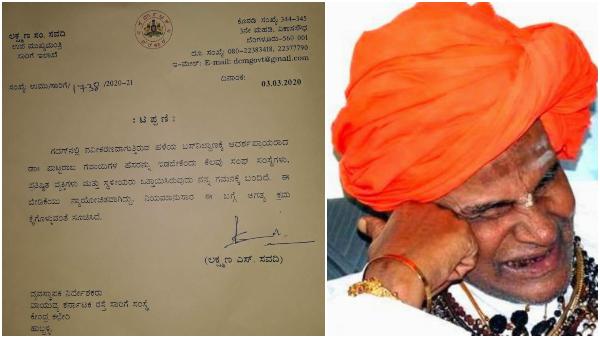 ಲಕ್ಷ್ಮಣ ಸಂ. ಸವದಿ
ಉಪ ಮುಖ್ಯಮಂತ್ರಿ
ಸಾರಿಗೆ ಇಲಾಖೆ
ಕೊಠಡಿ ಸಂಖ್ಯೆ 344-345
3ನೇ ಮಹಡಿ, ವಿಕಾಸಸೌಧ
ಬೆಂಗಳೂರು-560 001
ದೂ. ಸಂಖ್ಯೆ: 080-22383418, 22377790
ಇ-ಮೇಲ್: E-mail: dcmgovt@gmail.com
ಸಂಖ್ಯೆ: ಉಮು/ಸಾರಿಗೆ/ /2020-21
ದಿನಾಂಕ: 03.03.2020
: ಟಿಪ್ಪಣಿ :
ಗದಗ್‌ನಲ್ಲಿ ನವೀಕರಣವಾಗುತ್ತಿರುವ ಹಳೆಯ ಬಸ್‌ನಿಲ್ದಾಣಕ್ಕೆ ಆದರ್ಶಪ್ರಾಯರಾದ
ಡಾ|| ಪುಟ್ಟರಾಜ ಗವಾಯಿಗಳ ಹೆಸರನ್ನು ಇಡಬೇಕೆಂದು ಕೆಲವು ಸಂಘ ಸಂಸ್ಥೆಗಳು,
ಪ್ರತಿಷ್ಠಿತ ವ್ಯಕ್ತಿಗಳು ಮತ್ತು ಸ್ಥಳೀಯರು ಒತ್ತಾಯಿಸಿರುವುದು ನನ್ನ ಗಮನಕ್ಕೆ ಬಂದಿದೆ. ಈ
ಬೇಡಿಕೆಯು ನ್ಯಾಯೋಚಿತವಾಗಿದ್ದು, ನಿಯಮಾನುಸಾರ ಈ ಬಗ್ಗೆ ಅಗತ್ಯ ಕ್ರಮ
ಕೈಗೊಳ್ಳುವಂತೆ ಸೂಚಿಸಿದೆ.
(ಲಕ್ಷ್ಮಣ ಎಸ್. ಸವದಿ)
ವ್ಯವಸ್ಥಾಪಕ ನಿರ್ದೇಶಕರು
ವಾಯುವ್ಯ ಕರ್ನಾಟಕ ರಸ್ತೆ ಸಾರಿಗೆ ಸಂಸ್ಥೆ
ಕೇಂದ್ರ ಕಛೇರಿ
ಹುಬ್ಬಳ್ಳಿ.